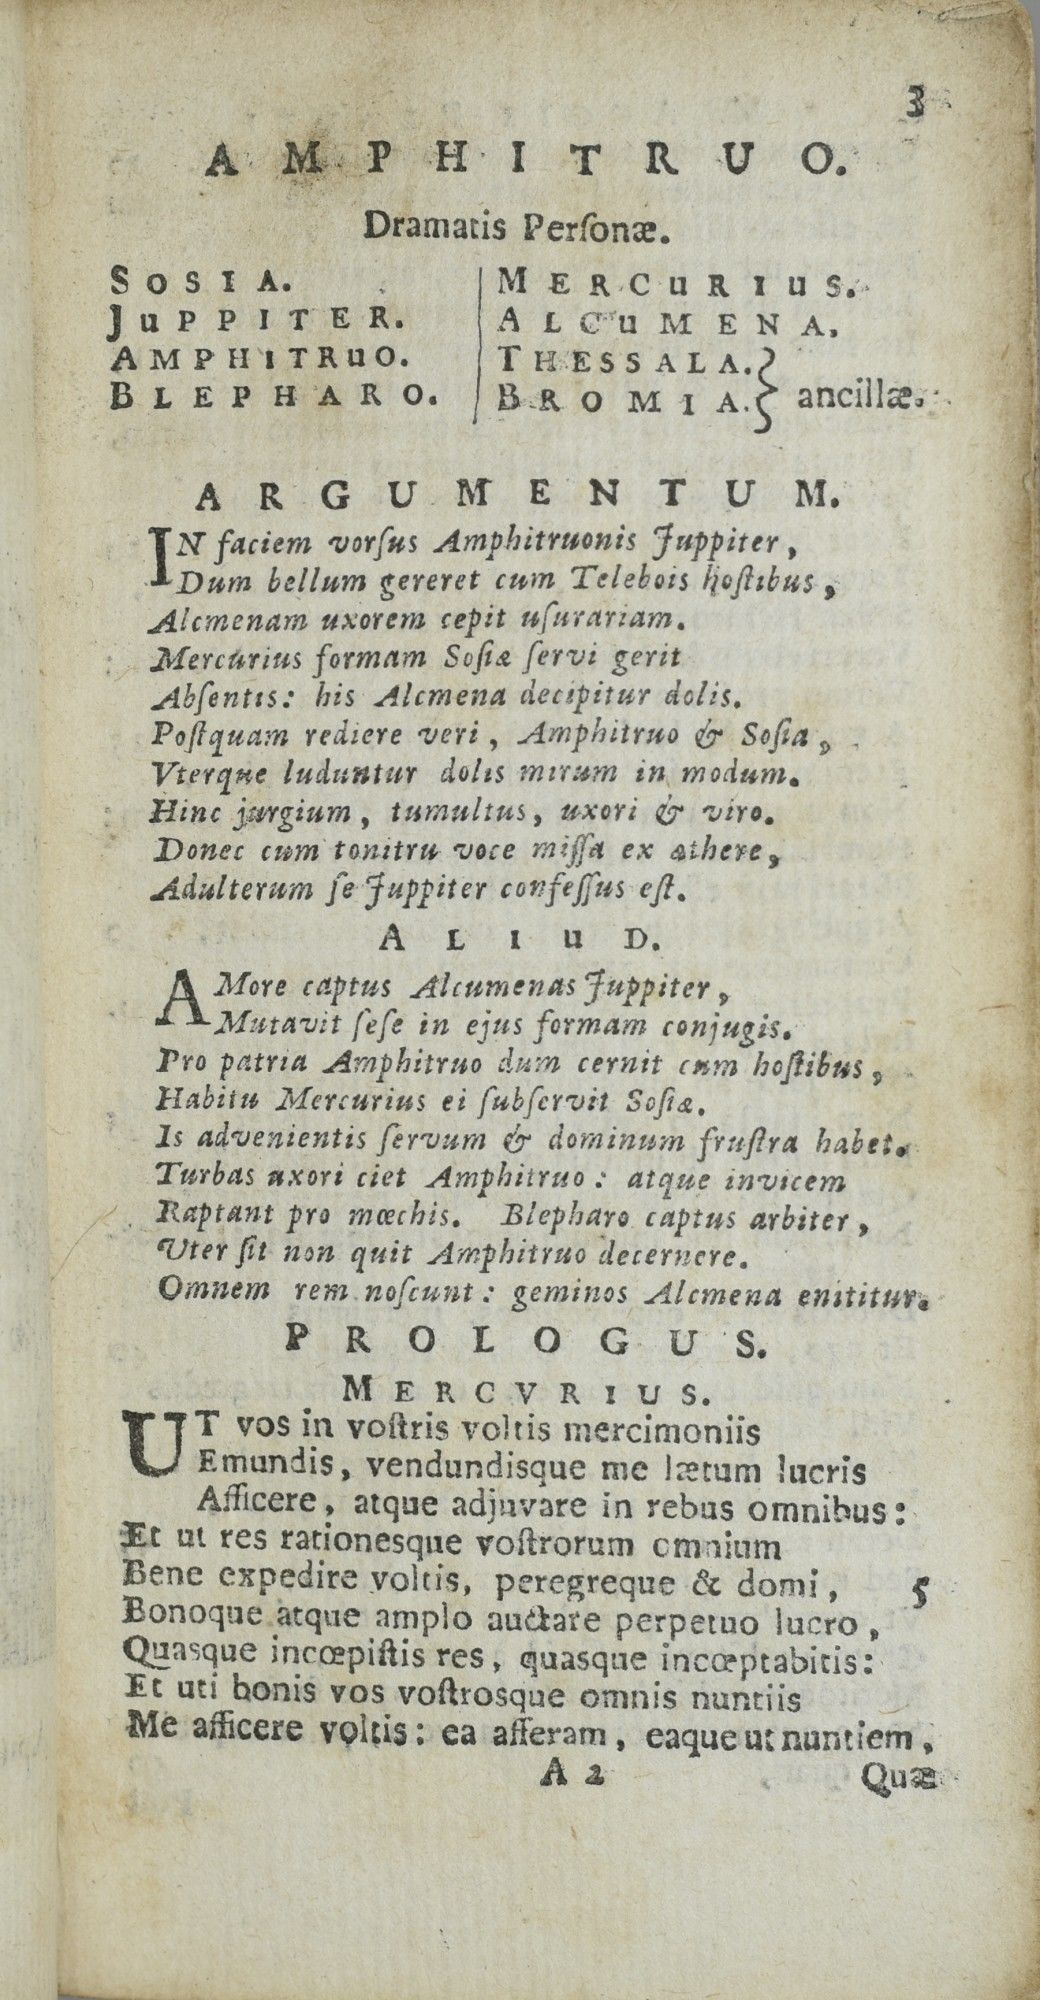 3
AMPHITRUO.
Dramatis Perſonæ.
SOSIA.
JUPPITER.
AMPHITRUO.
BLEPHARO.
MERCURIUS.
ALCUMENA.
THESSALA.
BROMIA. } ancillæ.
ARGUMENTUM.
IN faciem vorſus Amphitruonis Juppiter,
Dum bellum gereret cum Telebois hoſtibus,
Alcmenam uxorem cepit uſurariam.
Mercurius formam Soſiæ ſervi gerit
Abſentis: his Alcmena decipitur dolis.
Poſtquam rediere veri, Amphitruo & Soſia,
Vterque luduntur dolis mirum in modum.
Hinc jurgium, tumultus, uxori & viro.
Donec cum tonitru voce miſſa ex æthere,
Adulterum ſe Juppiter confeſſus eſt.
ALIUD.
AMore captus Alcumenas Juppiter,
Mutavit ſeſe in ejus formam conjugis.
Pro patria Amphitruo dum cernit cum hoſtibus,
Habitu Mercurius ei ſubſervit Soſiæ.
Is advenientis ſervum & dominum fruſtra habet.
Turbas uxori ciet Amphitruo: atque invicem
Raptant pro mœchis. Blepharo captus arbiter,
Vter ſit non quit Amphitruo decernere.
Omnem rem noſcunt: geminos Alcmena enititur.
PROLOGUS.
MERCVRIUS.
UT vos in voſtris voltis mercimoniis
Emundis, vendundisque me lætum lucris
Afficere, atque adjuvare in rebus omnibus:
Et ut res rationesque voſtrorum omnium
Bene expedire voltis, peregreque & domi, 5
Bonoque atque amplo auctare perpetuo lucro,
Quasque incœpiſtis res, quasque incœptabitis:
Et uti bonis vos voſtrosque omnis nuntiis
Me afficere voltis: ea afferam, eaque ut nuntiem,
A 2 Quæ